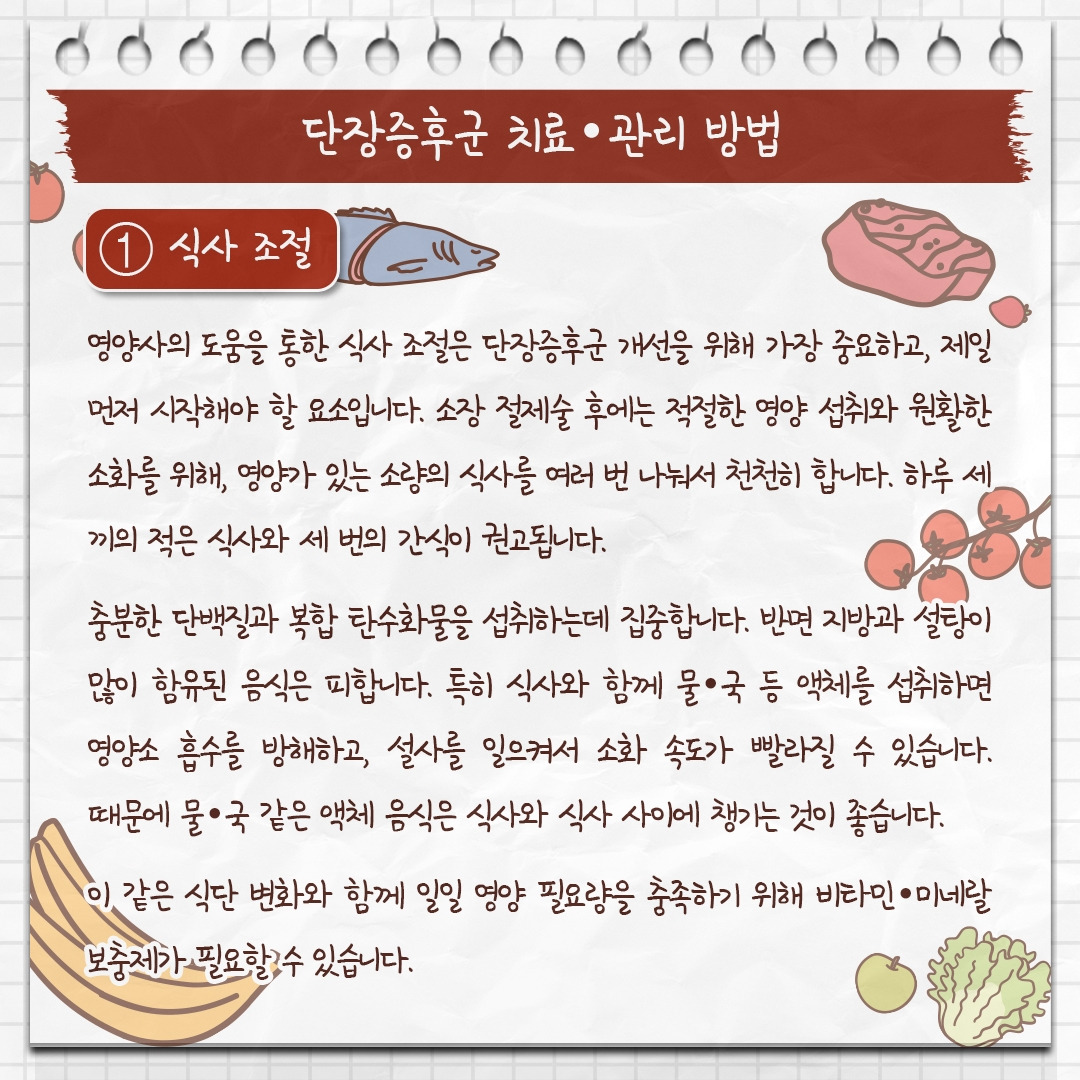 단장증후군 치료•관리 방법
① 식사 조절
영양사의 도움을 통한 식사 조절은 단장증후군 개선을 위해 가장 중요하고, 제일
먼저 시작해야 할 요소입니다. 소장 절제술 후에는 적절한 영양 섭취와 원활한
소화를 위해, 영양가 있는 소량의 식사를 여러 번 나눠서 천천히 합니다. 하루 세
끼의 적은 식사와 세 번의 간식이 권고됩니다.
충분한 단백질과 복합 탄수화물을 섭취하는데 집중합니다. 반면 지방과 설탕이
많이 함유된 음식은 피합니다. 특히 식사와 함께 물•국 등 액체를 섭취하면
영양소 흡수를 방해하고, 설사를 일으켜서 소화 속도가 빨라질 수 있습니다.
때문에 물•국 같은 액체 음식은 식사와 식사 사이에 챙기는 것이 좋습니다.
이 같은 식단 변화와 함께 일일 영양 필요량을 충족하기 위해 비타민•미네랄
보충제가 필요할 수 있습니다.